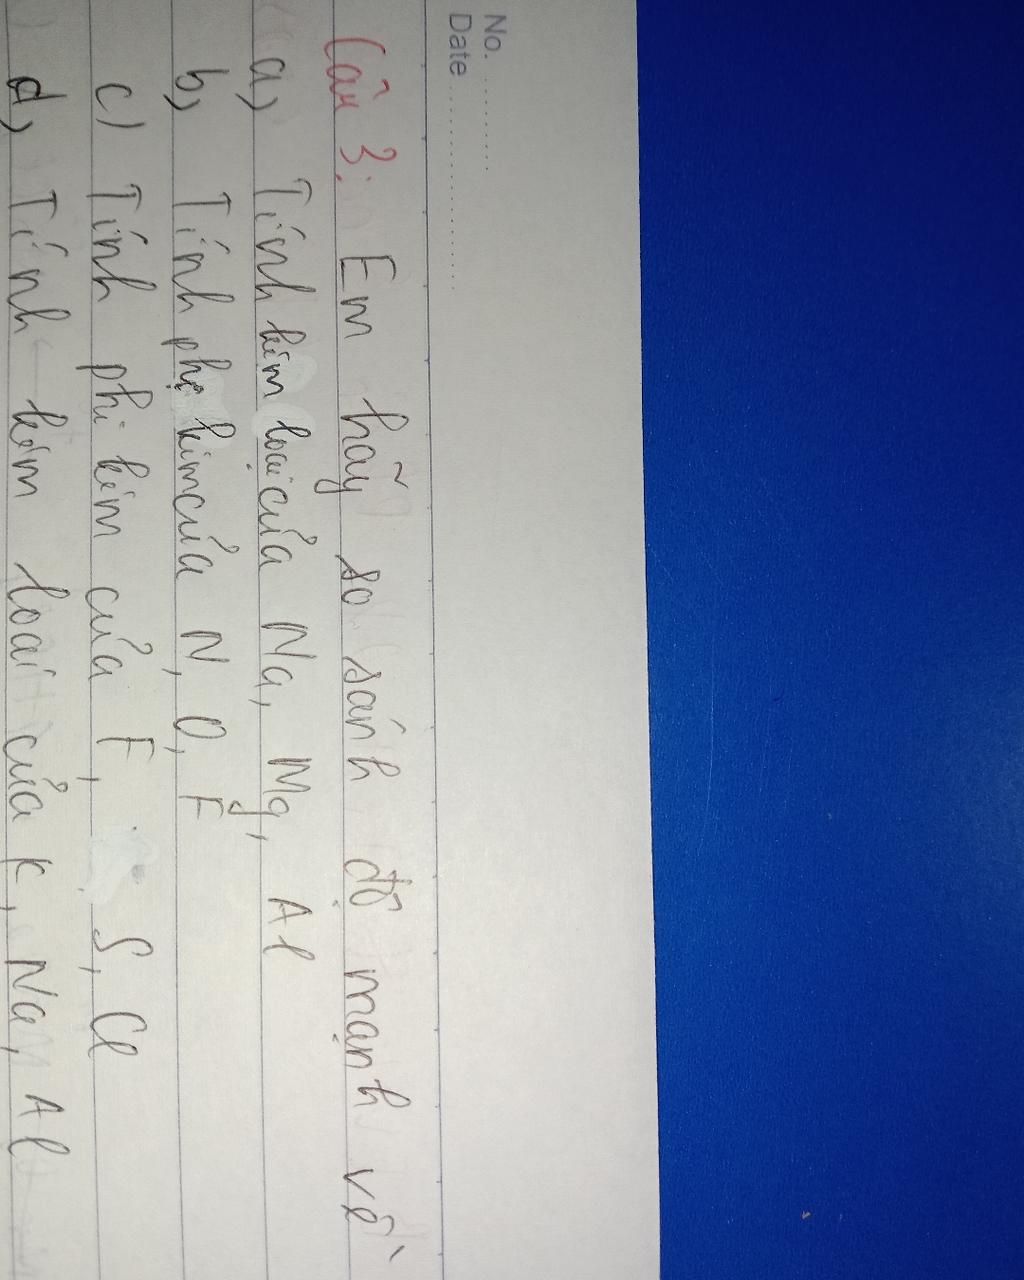 No. ..........
Date ......................
Câu 3: Em hãy so sánh độ mạnh về
a) Tính kim loại của Na, Mg, Al
b) Tính phi kim của N, O, F
c) Tính phi kim của F, S, Cl
d) Tính kim loại của K, Na, Al